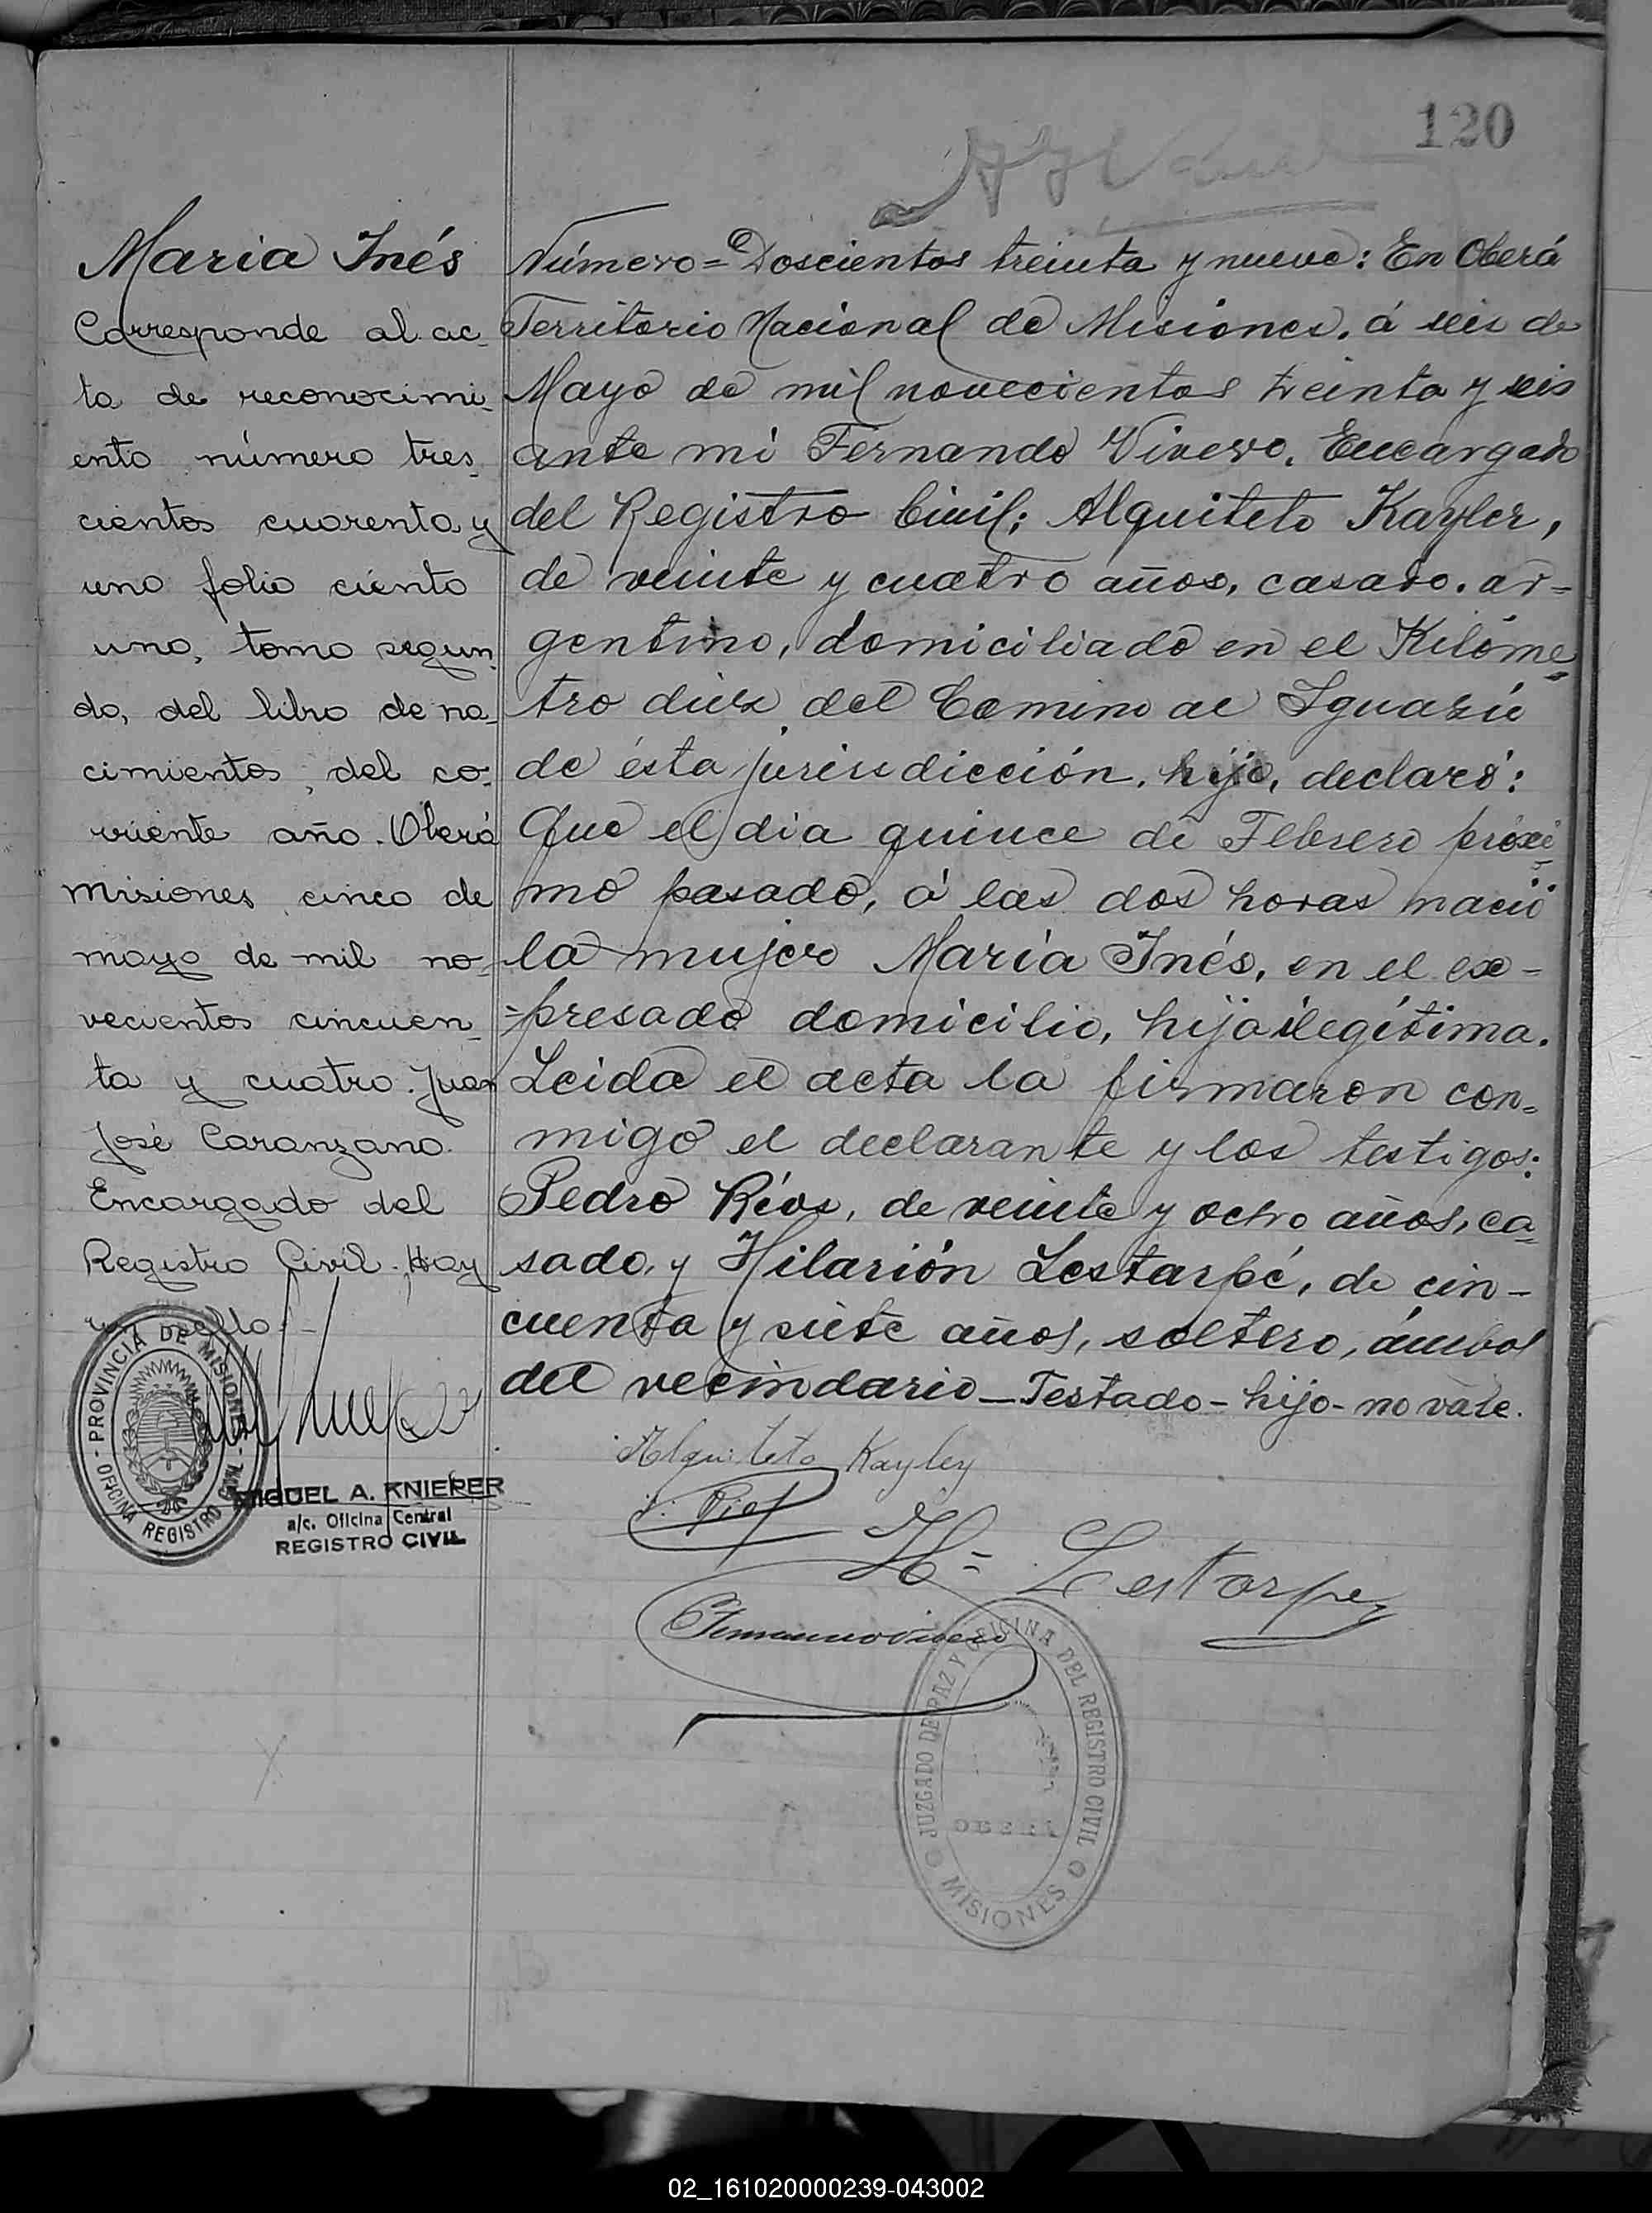 120
Maria Inés
Corresponde al ac-
ta de reconocimi-
ento número tres-
cientos cuarenta y
uno folio ciento
uno, tomo segun-
do, del libro de na-
cimientos, del co-
rriente año. Oberá
Misiones cinco de
mayo de mil no-
vecientos cincuen-
ta y cuatro. Juan
José Caranzano.
Encargado del
Registro Civil. Hay
un sello.-
PROVINCIA DE MISIONES - OFICINA REGISTRO CIVIL -
MIGUEL A. KNIEPER
a/c. Oficina Central
REGISTRO CIVIL
Número = Doscientos treinta y nueve: En Oberá
Territorio Nacional de Misiones, á seis de
Mayo de mil novecientos treinta y seis
ante mi Fernando Vivero, Encargado
del Registro Civil; Alquiteto Kayler,
de veinte y cuatro años, casado, ar-
gentino, domiciliado en el Kilóme-
tro diez del Camino al Iguazú
de ésta jurisdicción, hijo, declaró:
Que el dia quince de Febrero próxi-
mo pasado, á las dos horas nació
la mujer María Inés, en el ex-
=presado domicilio, hija ilegítima.
Leida el acta la firmaron con-
migo el declarante y los testigos:
Pedro Ríos, de veinte y ocho años, ca-
sado, y Hilarión Lestarpé, de cin-
cuenta y siete años, soltero, ámbos
del vecindario - Testado - hijo - no vale.
Alquiteto Kayley
P. Rios
H= Lestarpe
Fernando Vivero
JUZGADO DE PAZ Y OFICINA DEL REGISTRO CIVIL
OBERÁ
MISIONES
02_161020000239-043002